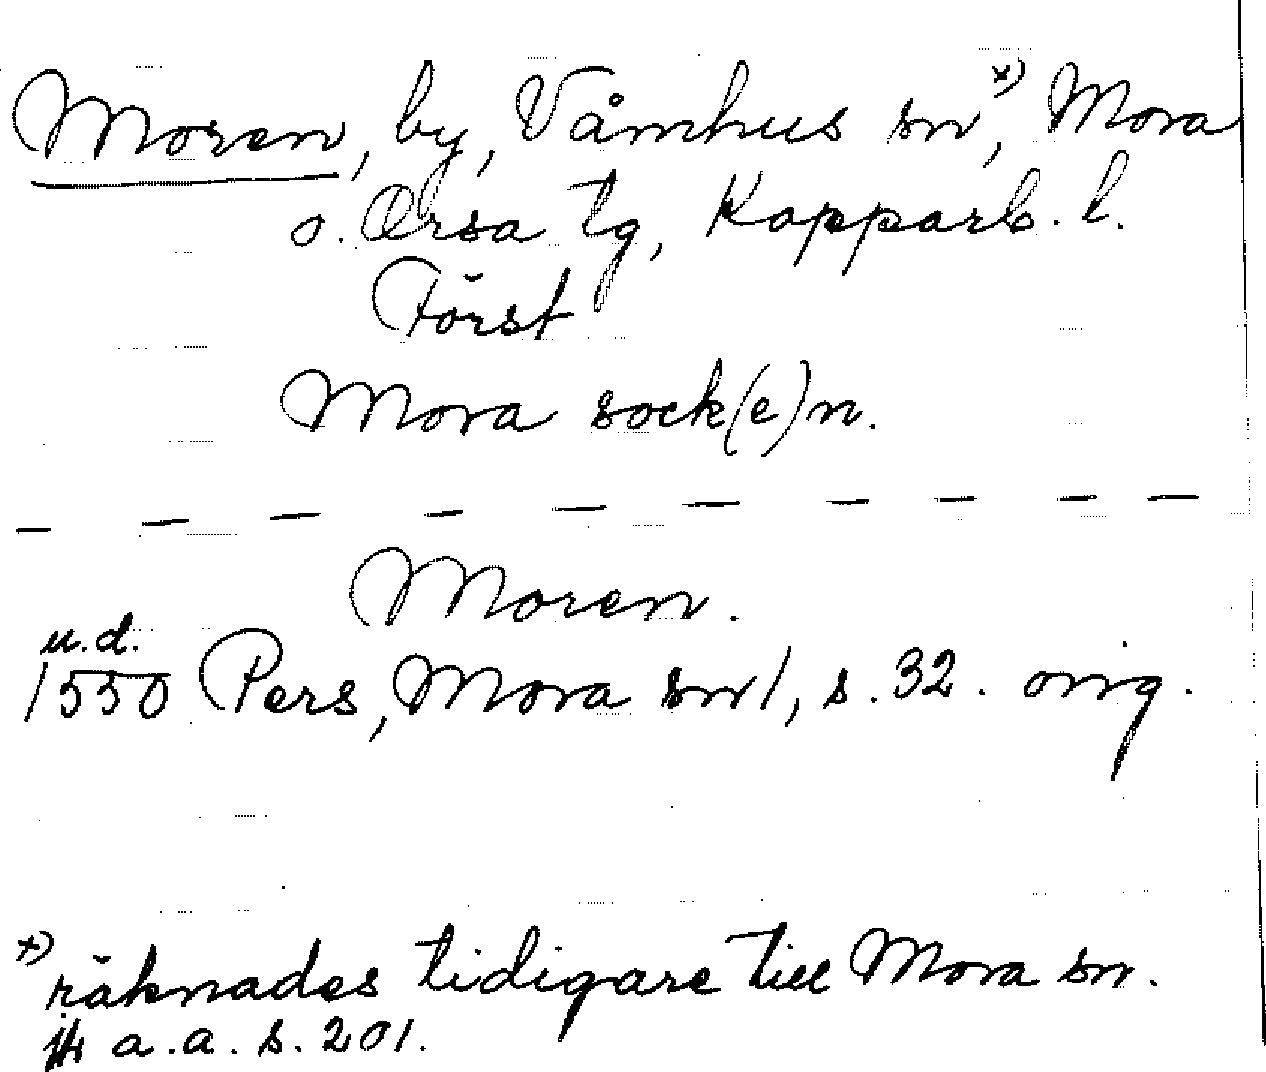 Moren, by, Våmhus sn, x) Mora
o. Orsa tg, Kopparb. l.
Först
Mora sock(e)n.
Moren.
u.d.
1550 Pers, Mora sn 1, s. 32. orig.
x) räknades tidigare till Mora sn.
a.a. s. 201.